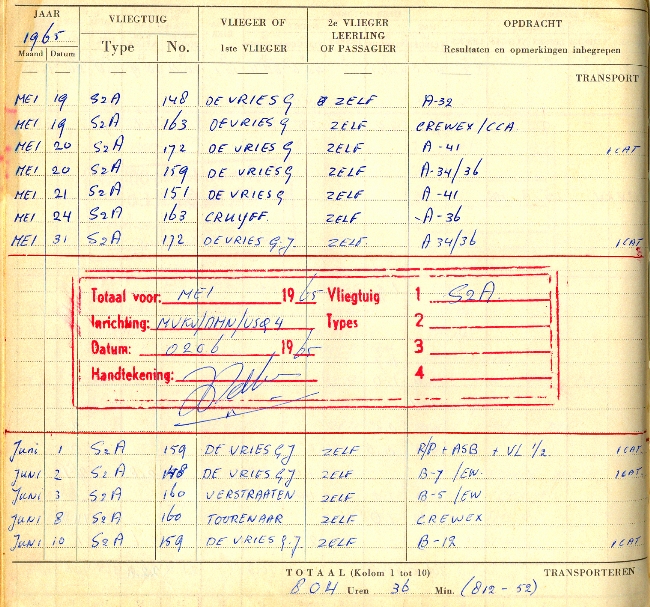 JAAR VLIEGTUIG VLIEGER OF 2e VLIEGER OPDRACHT
1965 LEERLING
Maand Datum Type No. 1ste VLIEGER OF PASSAGIER Resultaten en opmerkingen inbegrepen
TRANSPORT
MEI 19 S2A 148 DE VRIES G ZELF A-32
MEI 19 S2A 163 DEVRIES G ZELF CREWEX/CCA
MEI 20 S2A 172 DE VRIES G ZELF A-41 1 CAT
MEI 20 S2A 159 DE VRIES G ZELF A-34/36
MEI 21 S2A 151 DE VRIES G ZELF A-41
MEI 24 S2A 163 CRUYFF ZELF -A-36
MEI 31 S2A 172 DE VRIES G.J. ZELF A 34/36 1 CAT
Totaal voor: MEI 1965 Vliegtuig 1 S2A
Inrichting: MVKV/AMN/VSQ 4 Types 2
Datum: 0206 1965 3
Handtekening: 4
Juni 1 S2A 159 DE VRIES G.J ZELF R/P + ASB + VL 1/2 1 CAT
JUNI 2 S2A 148 DE VRIES G.J ZELF B-7/EW 1 CAT
JUNI 3 S2A 160 VERSTRAATEN ZELF B-5/EW
JUNI 8 S2A 160 TOORENAAR ZELF CREWEX
JUNI 10 S2A 159 DE VRIES G.J. ZELF B-12 1 CAT
TOTAAL (Kolom 1 tot 10) TRANSPORTEREN
804 Uren 36 Min. (812-52)